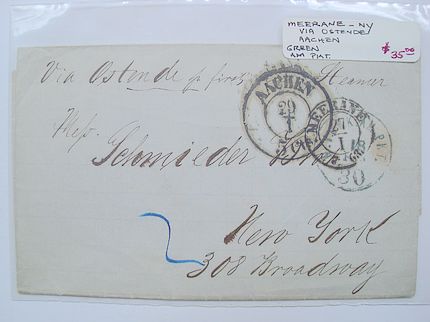 MEERANE – NY
VIA OSTENDE/
AACHEN
GREEN
AM PKT.
$35.00
Via Ostende pr first Steamer
AACHEN
20
1
MEERANE
I
Mess.
Schmieder Bro
30
New York
308 Broadway